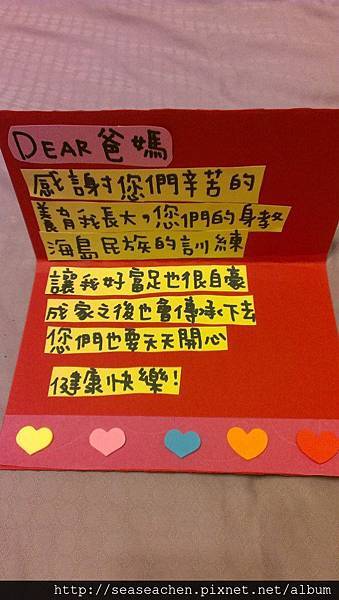 DEAR 爸媽
感謝您們辛苦的
養育我長大，您們的身教
海島民族的訓練
讓我好富足也很自豪
成家之後也會傳承下去
您們也要天天開心
健康快樂！
http://seaseachen.pixnet.net/album